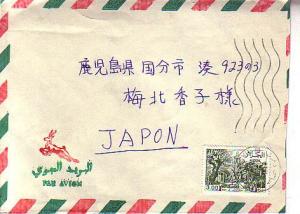 鹿児島県国分市湊92303
梅北香子様
JAPON
البريد الجوي
PAR AVION